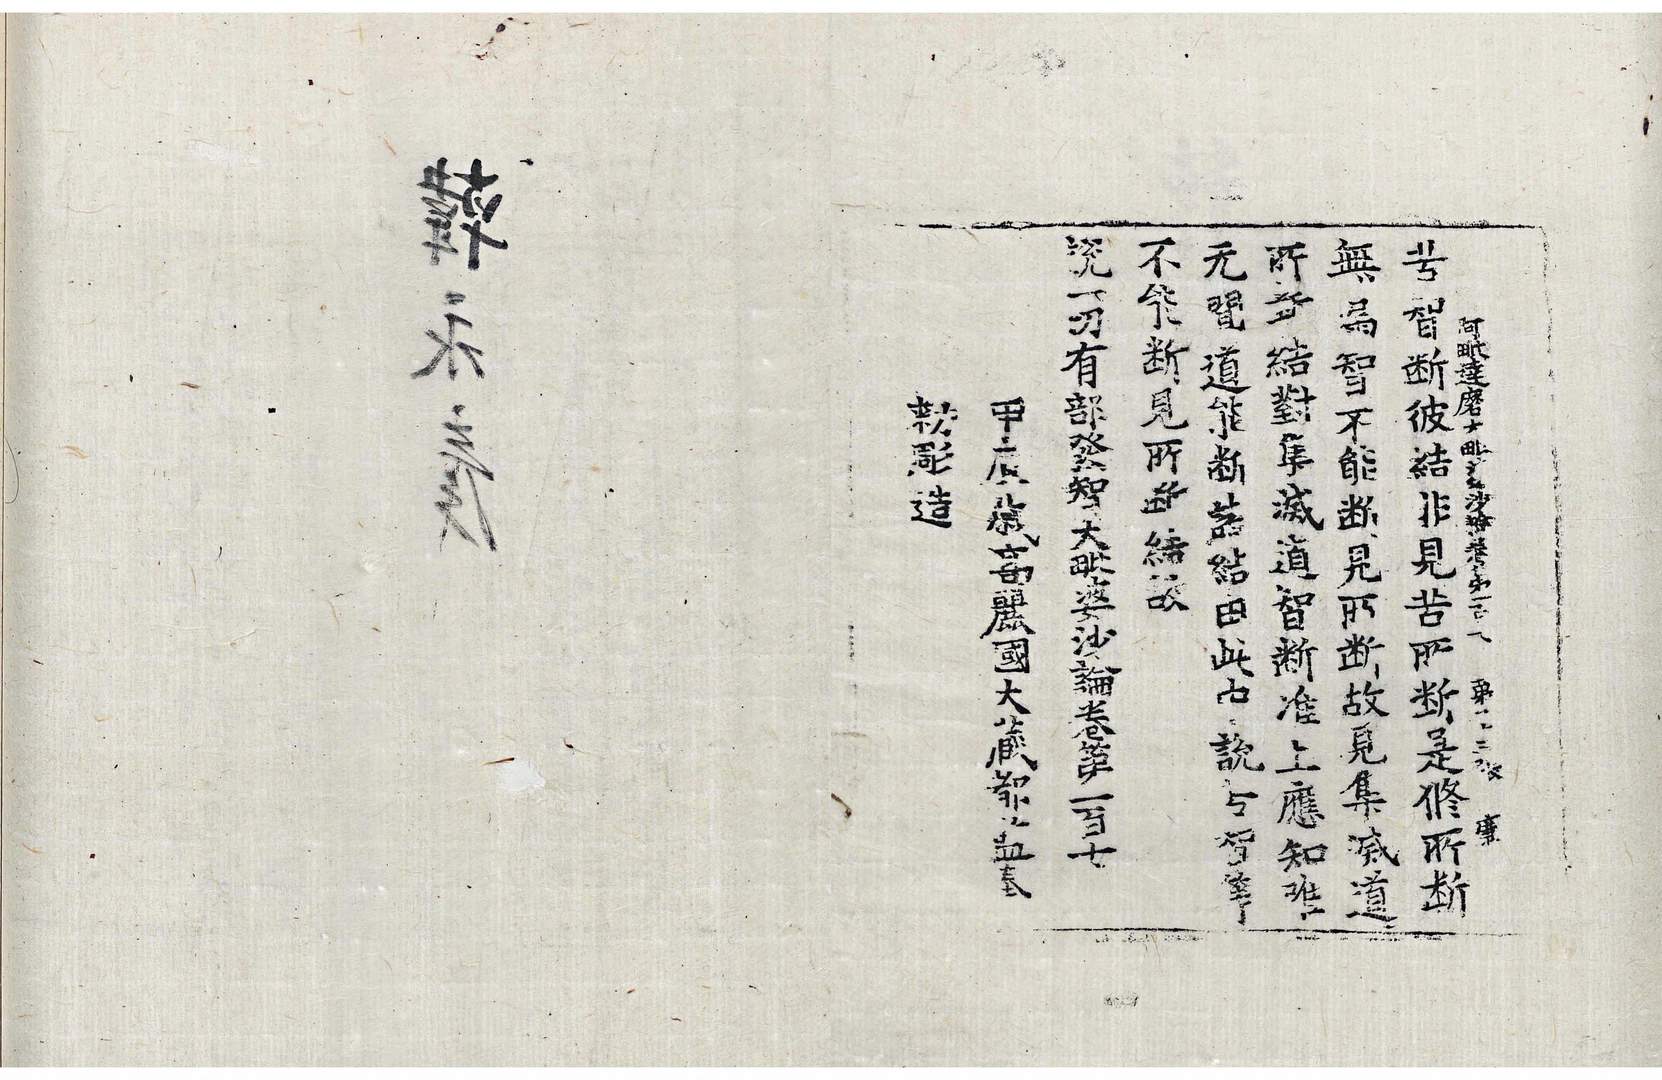 阿毗達磨大毗婆沙論卷第一百七 第二十三張 廉
苦智斷彼結非見苦所斷是修所斷
無爲智不能斷見所斷故見集滅道
所斷結對集滅道智斷准上應知雖
无習道能斷諸結由此中說
不能斷見所斷結故
說一切有部發智大毗婆沙論卷第一百七
甲辰歲高麗國大藏都監奉
勑彫造
韓永